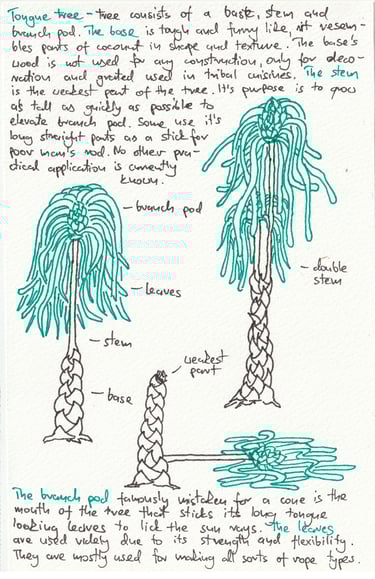 Tongue tree - tree consists of a base, stem and
branch pod. The base is tough and furry like, it resem-
bles parts of coconut in shape and texture. The base's
wood is not used for any construction, only for deco-
ration and grated used in tribal cuisines. The stem
is the weakest part of the tree. It's purpose is to grow
as tall as quickly as possible to
elevate branch pod. Some use it's
long straight parts as a stick for
poor man's rod. No other pra-
ctical application is currently
known.
branch pod
leaves
double
stem
stem
weakest
part
base
The branch pod famously mistaken for a cone is the
mouth of the tree that sticks its long tongue
looking leaves to lick the sun rays. The leaves
are used widely due to its strength and flexibility.
They are mostly used for making all sorts of rope types.